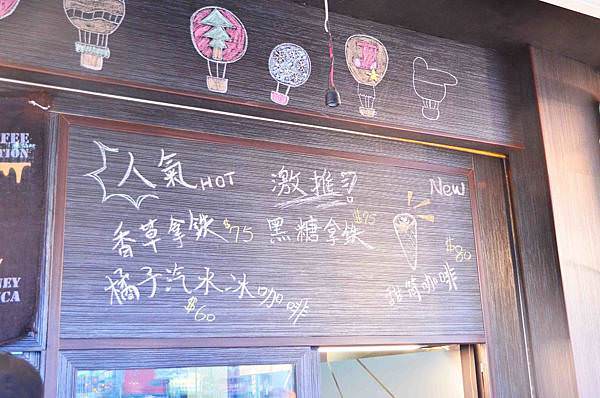 人氣 HOT 激推 New
香草拿鐵 $75 黑糖拿鐵 $75
橘子汽水冰咖啡 $60
甜筒咖啡 $80
FFEE
TION
NEY
CA